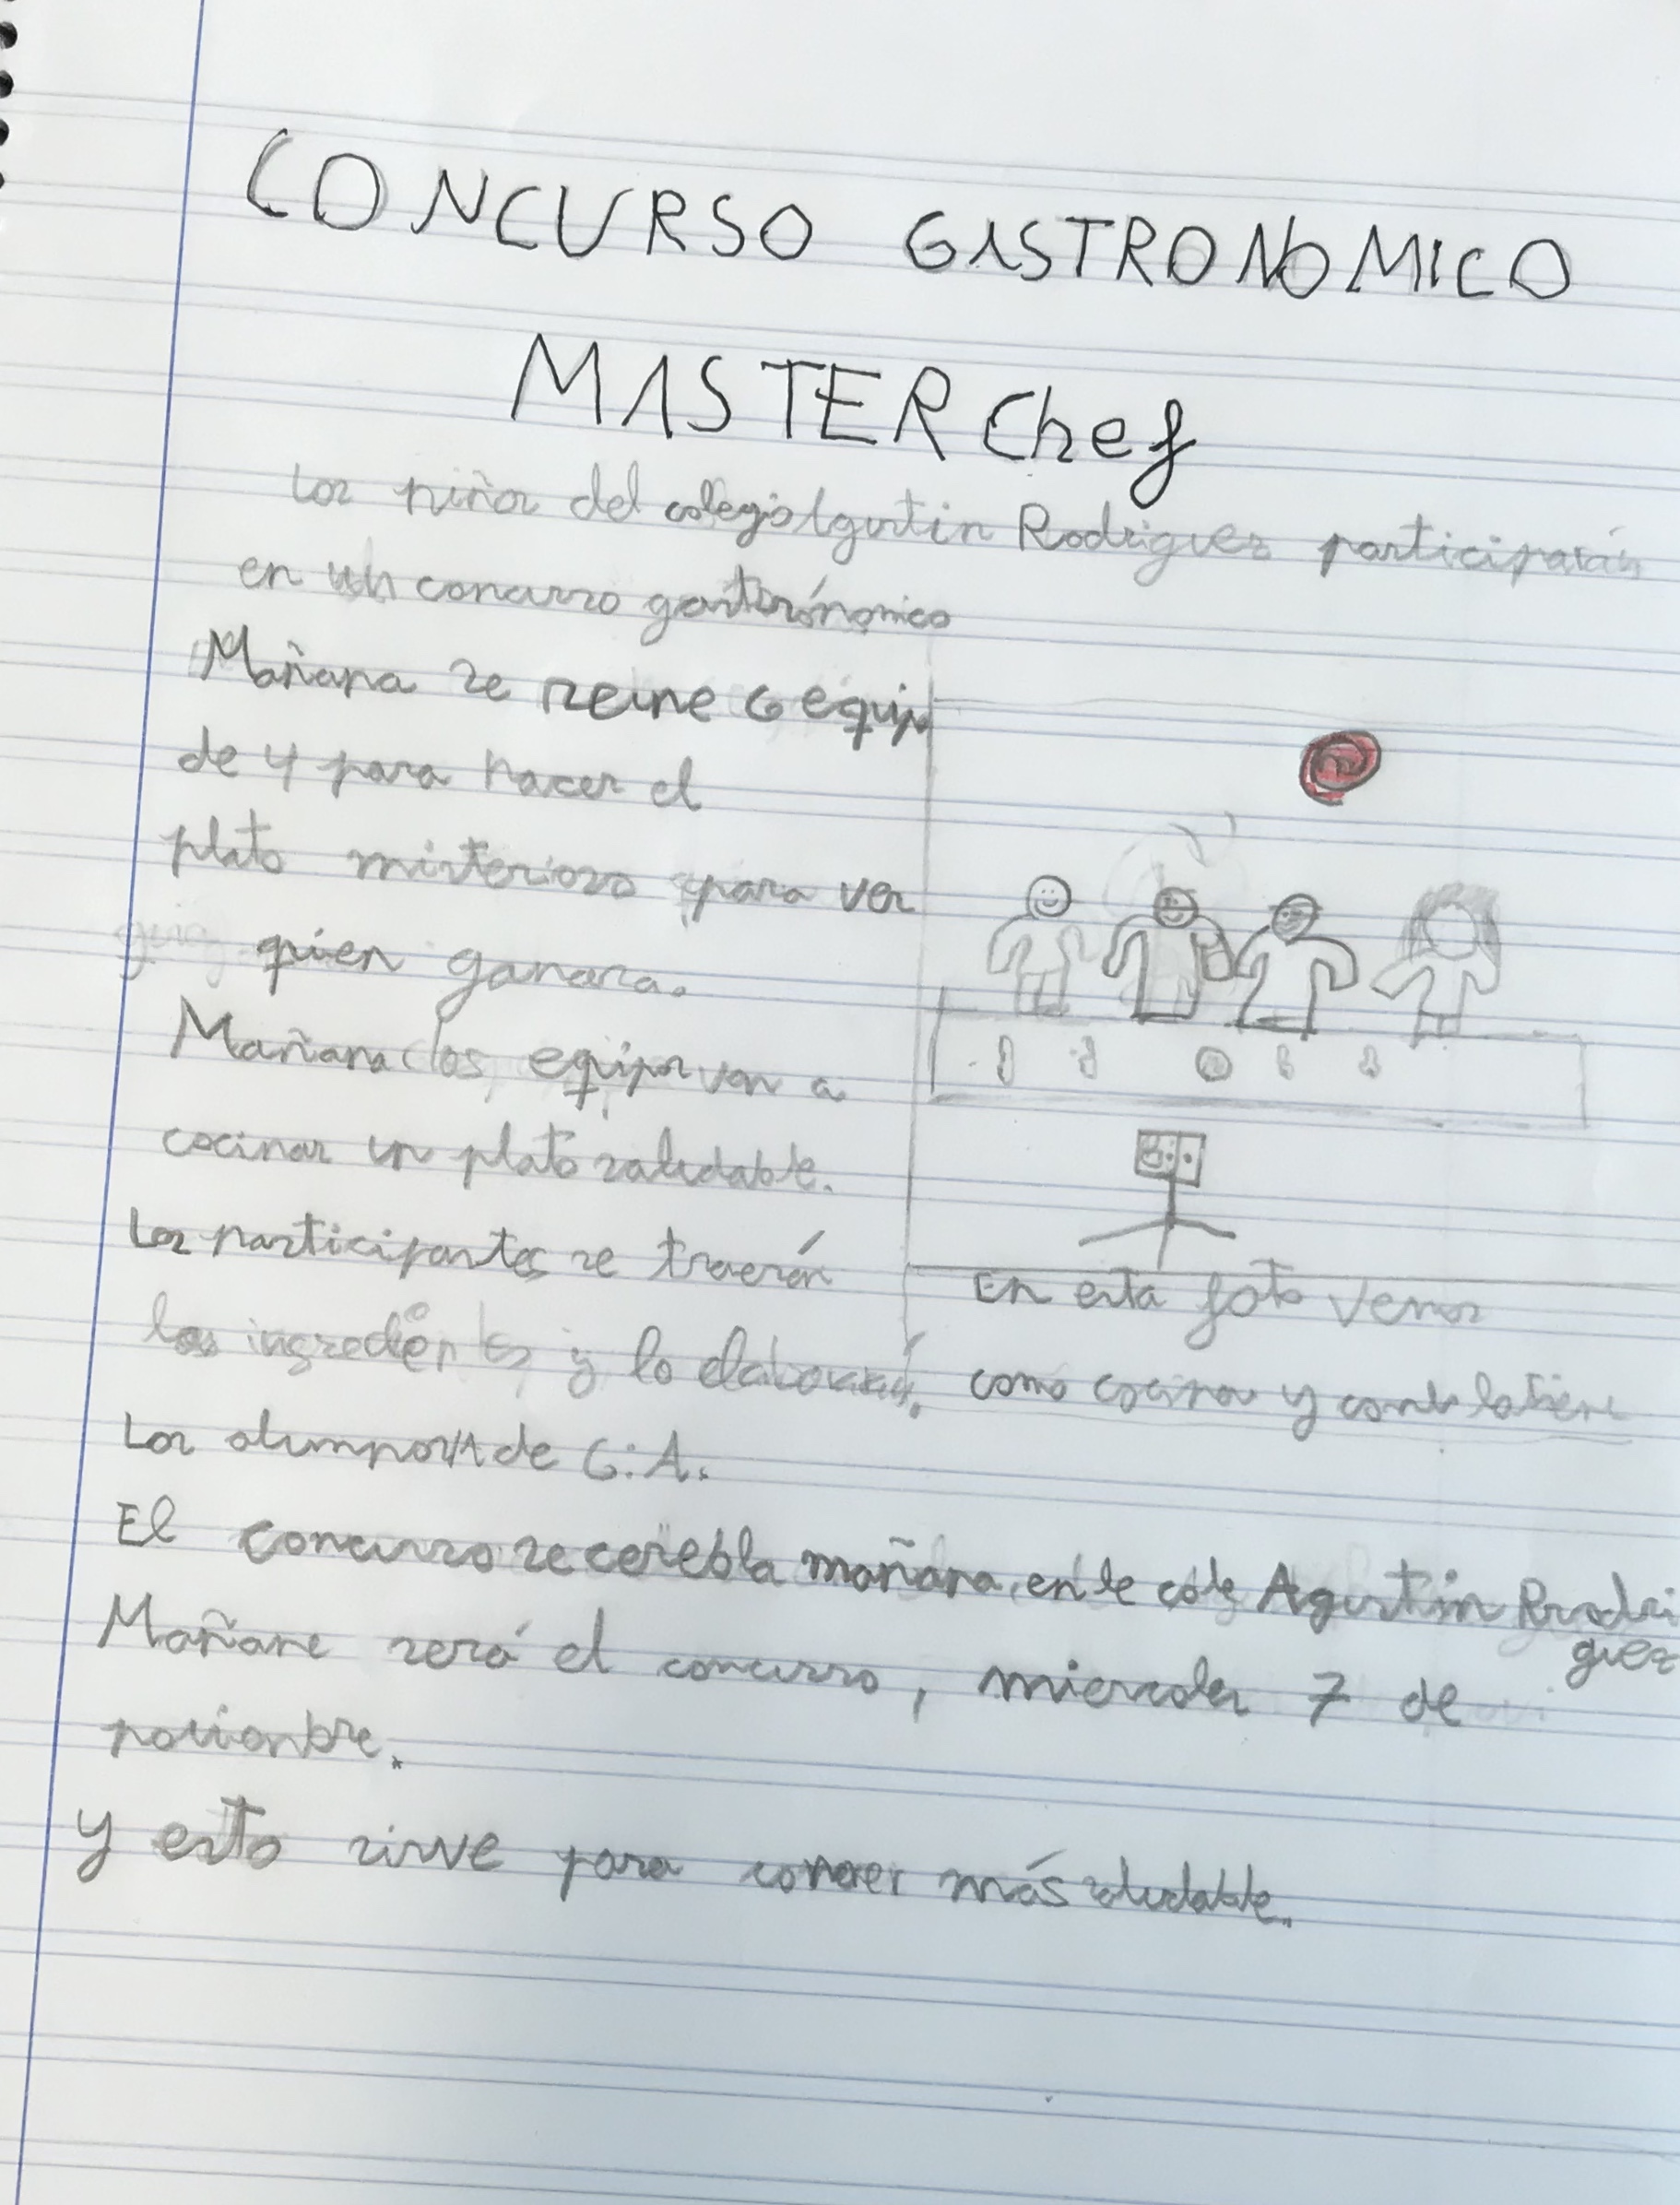 CONCURSO GASTRONOMICO
MASTERChef
Los niños del colegio Agustin Rodriguez participarán
en un concurso gastrónomico
Mañana se reine 6 equipos
de 4 para hacer el
plato misterioso para ver
quien ganara.
Mañana los equipos van a
cocinar un plato saludable.
Los participantes se traerán
los ingredientes y lo elaborará.
Los alumnos de 6:A.
En esta foto vemos
como cocina y
El concurso se cerebla mañana en le cole Agustin Rodri
guez
Mañane será el concurso, miercoles 7 de
novienbre.
y esto sirve para comer más saludable.